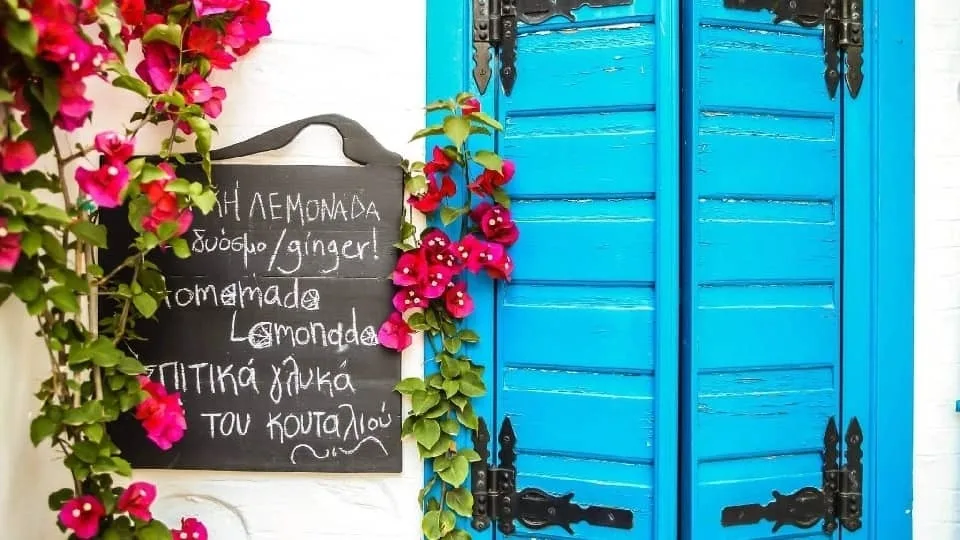 ΛΕΜΟΝΑΔΑ
δυόσμο/ginger!
Homemade
Lemonade
σπιτικά γλυκά
του κουταλιού